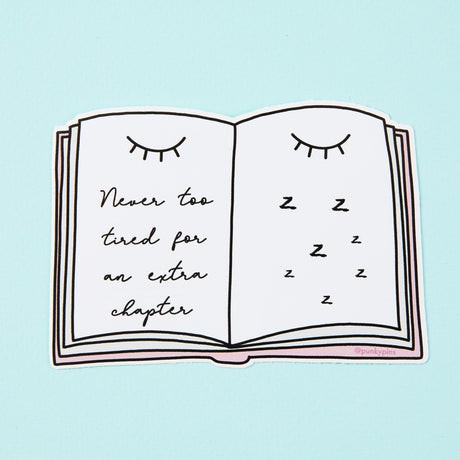 Never too
tired for
an extra
chapter
z z
z z
z z
z
@punkypins